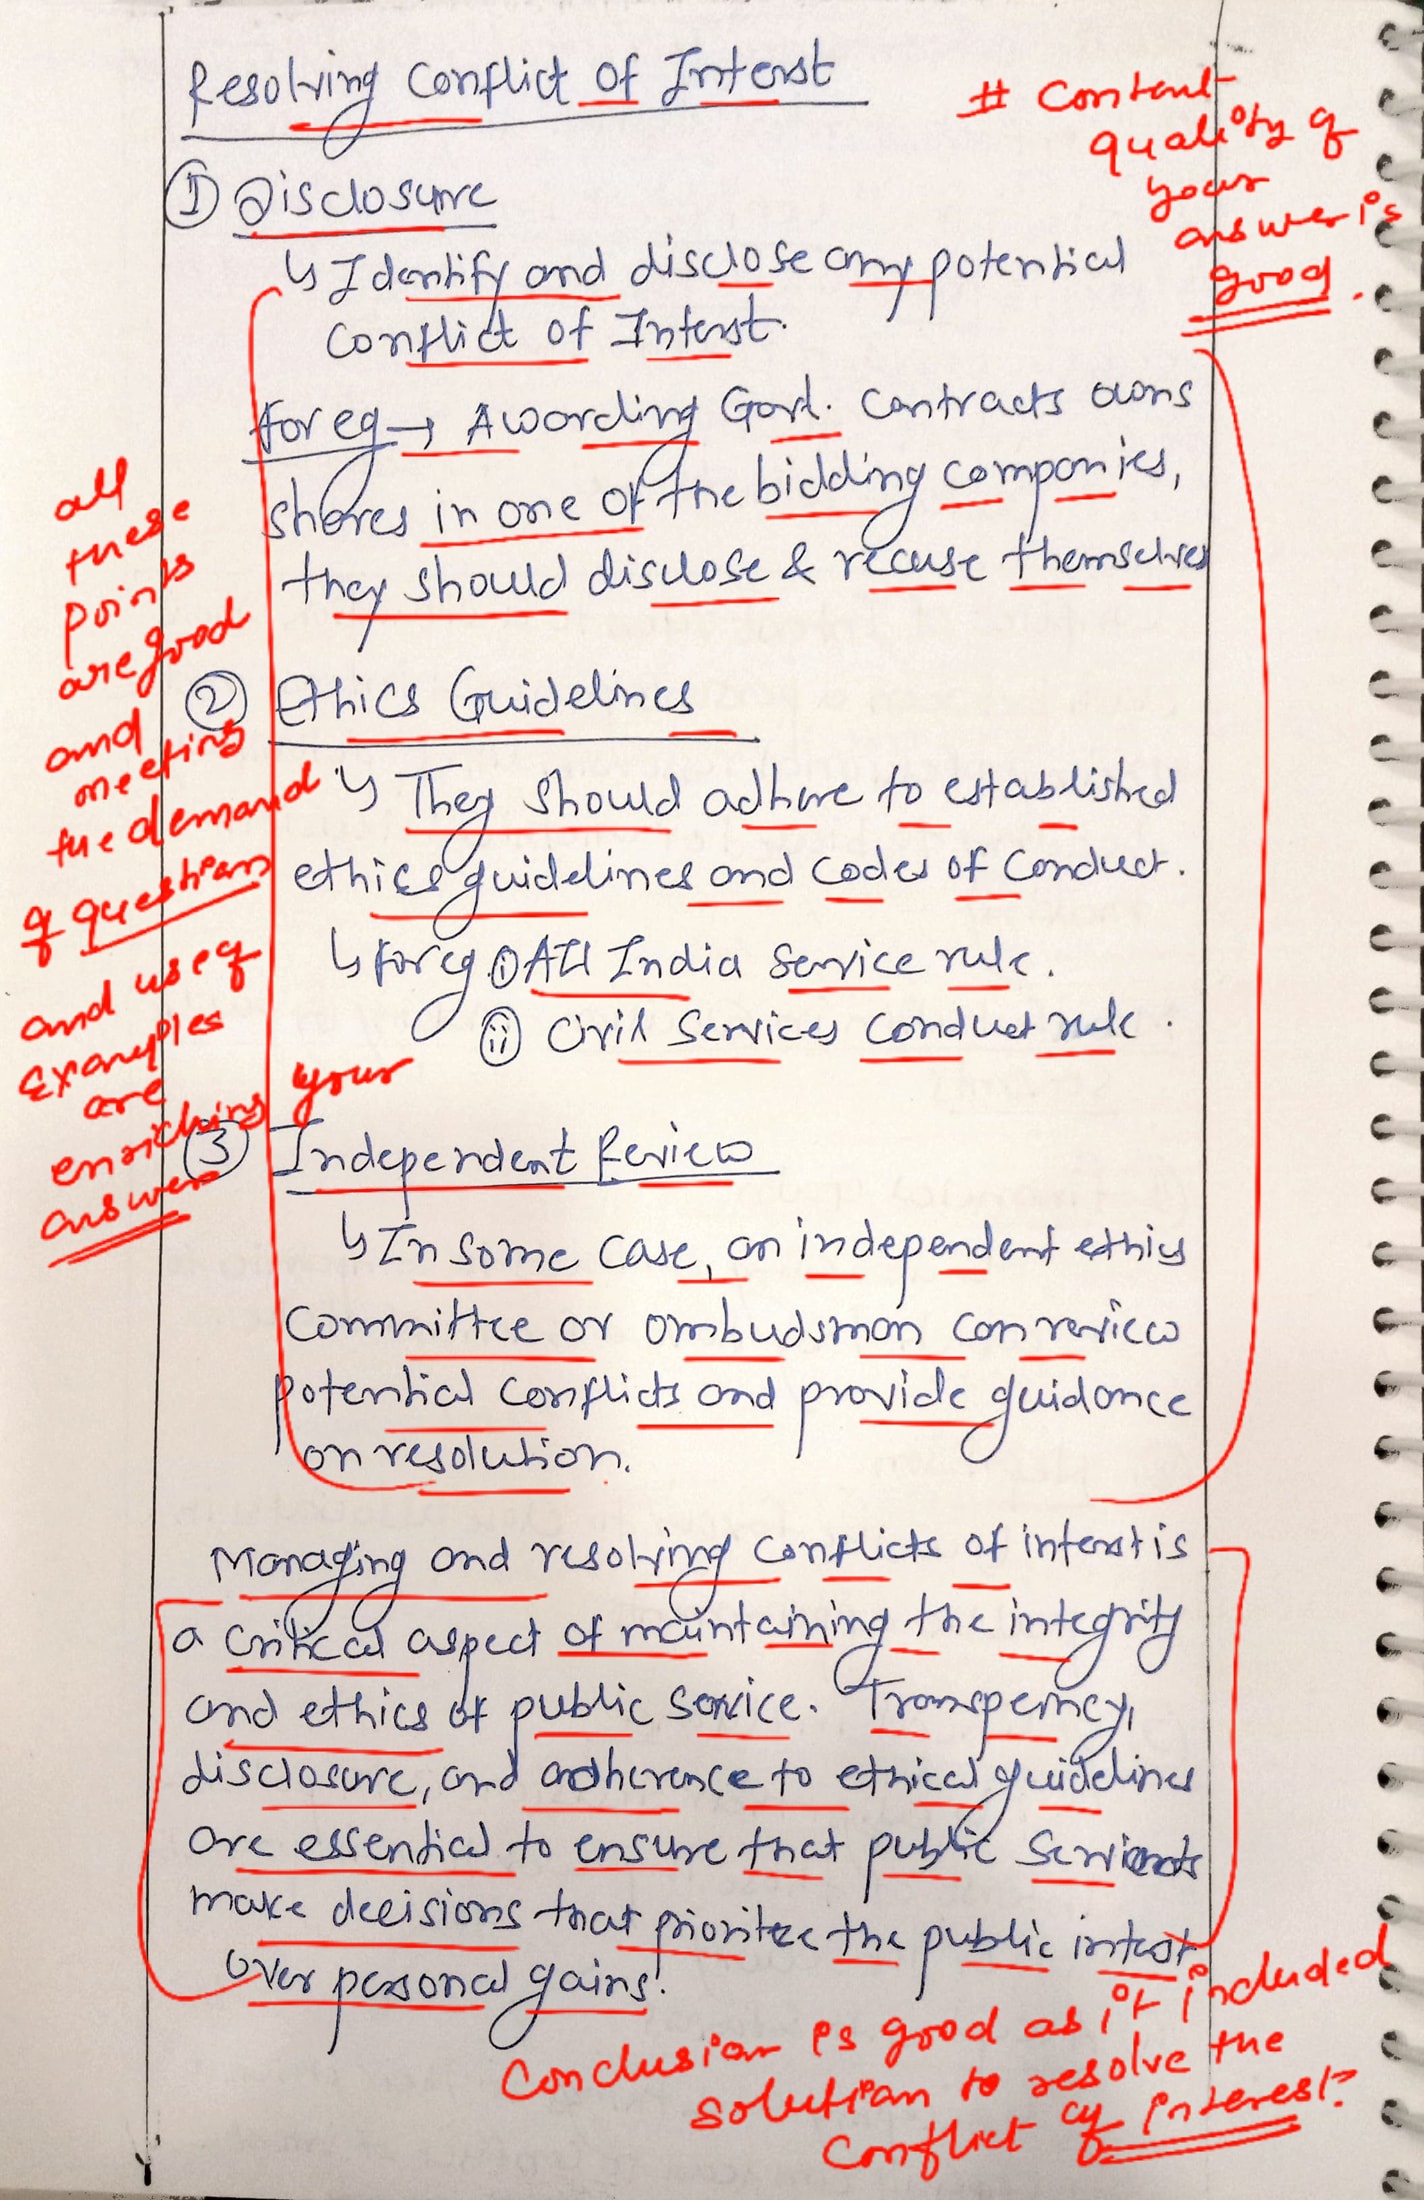 Resolving Conflict of Interst
# Content
quality of
your
answer is
good.
① Disclosure
↳ Identify and disclose any potential
Conflict of Interst.
for eg → Awarding Govt. contracts owns
shares in one of the bidding companies,
they should disclose & recuse themselves
all
these
points
are good
and
meeting
the demand
of question
and use of
examples
are
enriching your
answer
② Ethics Guidelines
↳ They should adhere to established
ethics guidelines and codes of conduct.
↳ for eg. ① All India Service rule.
ⓘⓘ Civil Services Conduct rule.
③ Independent Review
↳ In some case, an independent ethics
committee or ombudsman can review
potential conflicts and provide guidance
on resolution.
Managing and resolving conflicts of interst is
a critical aspect of maintaining the integrity
and ethics of public service. Transperncy,
disclosure, and adherence to ethical guidelines
are essential to ensure that public servants
make decisions that prioritze the public interst
over personal gains.
Conclusion is good as it included
solution to resolve the
conflict of interest.